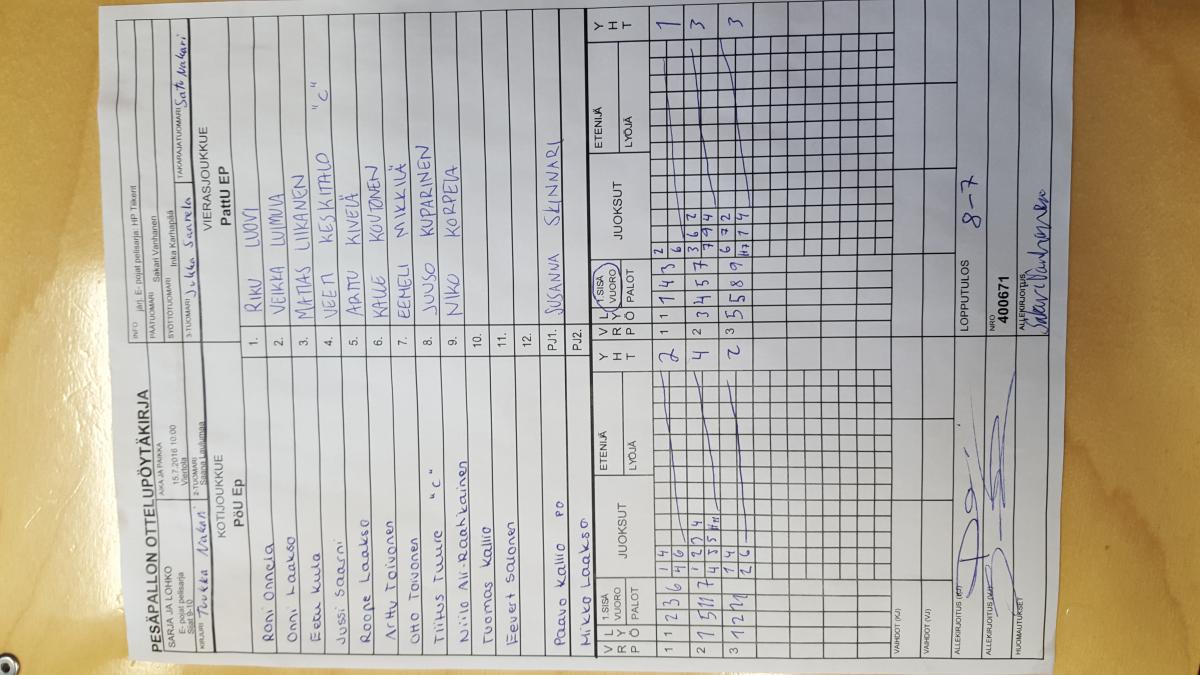 PESÄPALLON OTTELUPÖYTÄKIRJA
INFO järj. E- pojat pelisarja: HP Tiikerit
SARJA JA LOHKO
E- pojat pelisarja
Sijat 9-10
AIKA JA PAIKKA
15.7.2016 10.00
Viertola
PÄÄTUOMARI Sakari Vanhanen
SYÖTTÖTUOMARI Inka Karhapää
KIRJURI Toukka Nakari
2-TUOMARI
Saana Laulumaa
3-TUOMARI Jukka Saarela
TAKARAJATUOMARI Satu Nakari
KOTIJOUKKUE
PöU Ep
VIERASJOUKKUE
PattU EP
Roni Onnela
1. RIKU LUOVI
Onni Laakso
2. VEIKKA LUIMULA
Eetu Kula
3. MATIAS LIIKANEN
Jussi Saarni
4. VEETI KESKITALO "C"
Roope Laakso
5. ARTTU KIVELÄ
Arttu Toivonen
6. KALLE KOUTONEN
Otto Toivonen
7. EEMELI MIKKILÄ
Tiitus Tuure "C"
8. JUUSO KUPARINEN
Niilo Ali-Raahikainen
9. NIKO KORPELA
Tuomas Kallio
10.
Eevert Salonen
11.
12.
Paavo Kallio PO
PJ1. SUSANNA SKINNARI
Mikko Laakso
PJ2.
V L
R Y
P Ö
1.SISÄ
VUORO
PALOT
JUOKSUT
ETENIJÄ
LYÖJÄ
Y
H
T
V L
R Y
P Ö
1.SISÄ
VUORO
PALOT
JUOKSUT
ETENIJÄ
LYÖJÄ
Y
H
T
1 1 2 3 6
1 4
4 6
2
1 1 1 4 3
2
6
1
2
4
2 3 4 5 7
3 6 2
7 9 4
3
3
1 4
2 6
2
3 5 5 8 9
6 7 2
3
VAIHDOT (KJ)
VAIHDOT (VJ)
ALLEKIRJOITUS (KJ)
LOPPUTULOS 8-7
ALLEKIRJOITUS (VJ)
NRO
400671
HUOMAUTUKSET
ALLEKIRJOITUS
Sakari Vanhanen